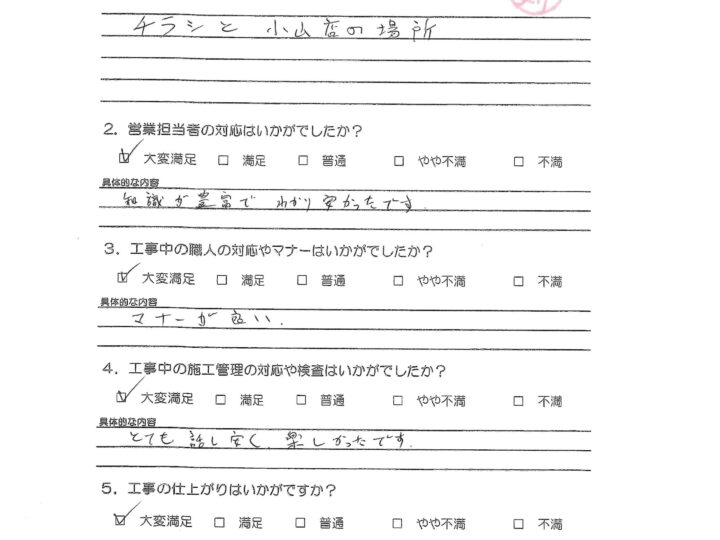 チラシと 小山店の場所
2. 営業担当者の対応はいかがでしたか？
☑ 大変満足 □ 満足 □ 普通 □ やや不満 □ 不満
具体的な内容
知識が豊富で わかり安かったです.
3. 工事中の職人の対応やマナーはいかがでしたか？
☑ 大変満足 □ 満足 □ 普通 □ やや不満 □ 不満
具体的な内容
マナーが良い.
4. 工事中の施工管理の対応や検査はいかがでしたか？
☑ 大変満足 □ 満足 □ 普通 □ やや不満 □ 不満
具体的な内容
とても 話し安く、楽しかったです.
5. 工事の仕上がりはいかがですか？
☑ 大変満足 □ 満足 □ 普通 □ やや不満 □ 不満